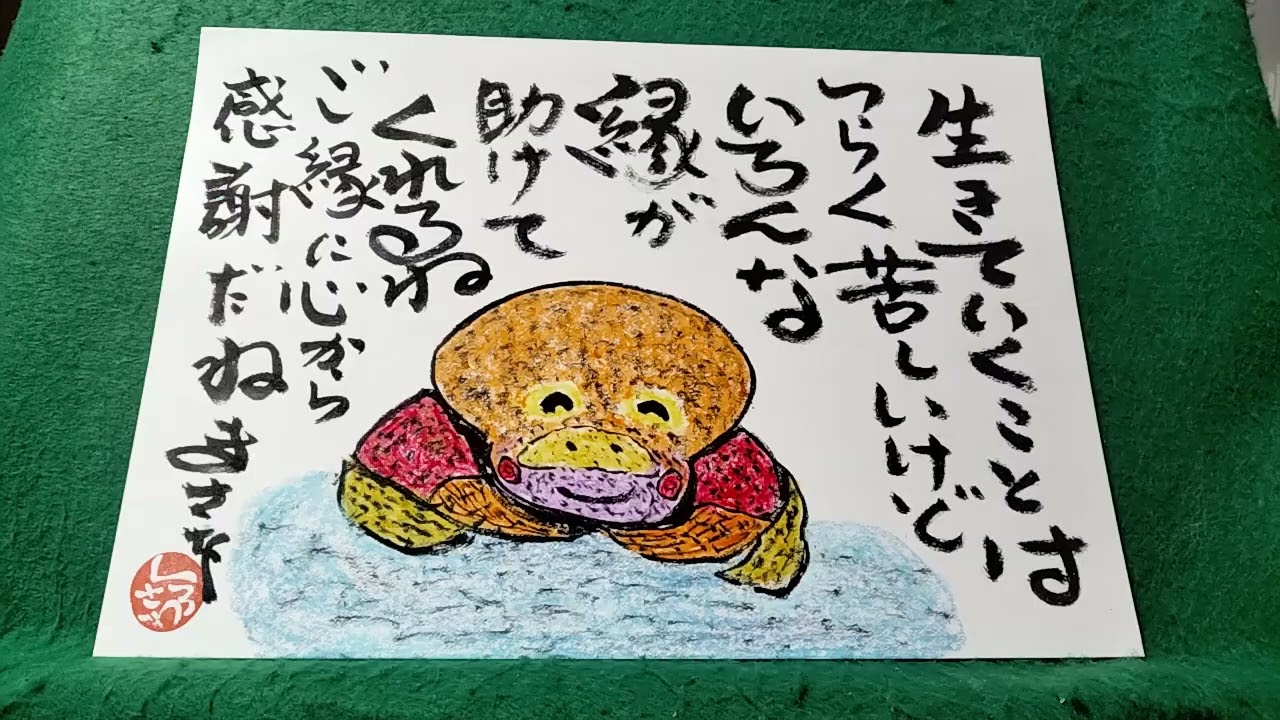 生きていくことは
つらく苦しいけど
いろんな
縁が
助けて
くれるね
ご縁に心から
感謝だね
まさを